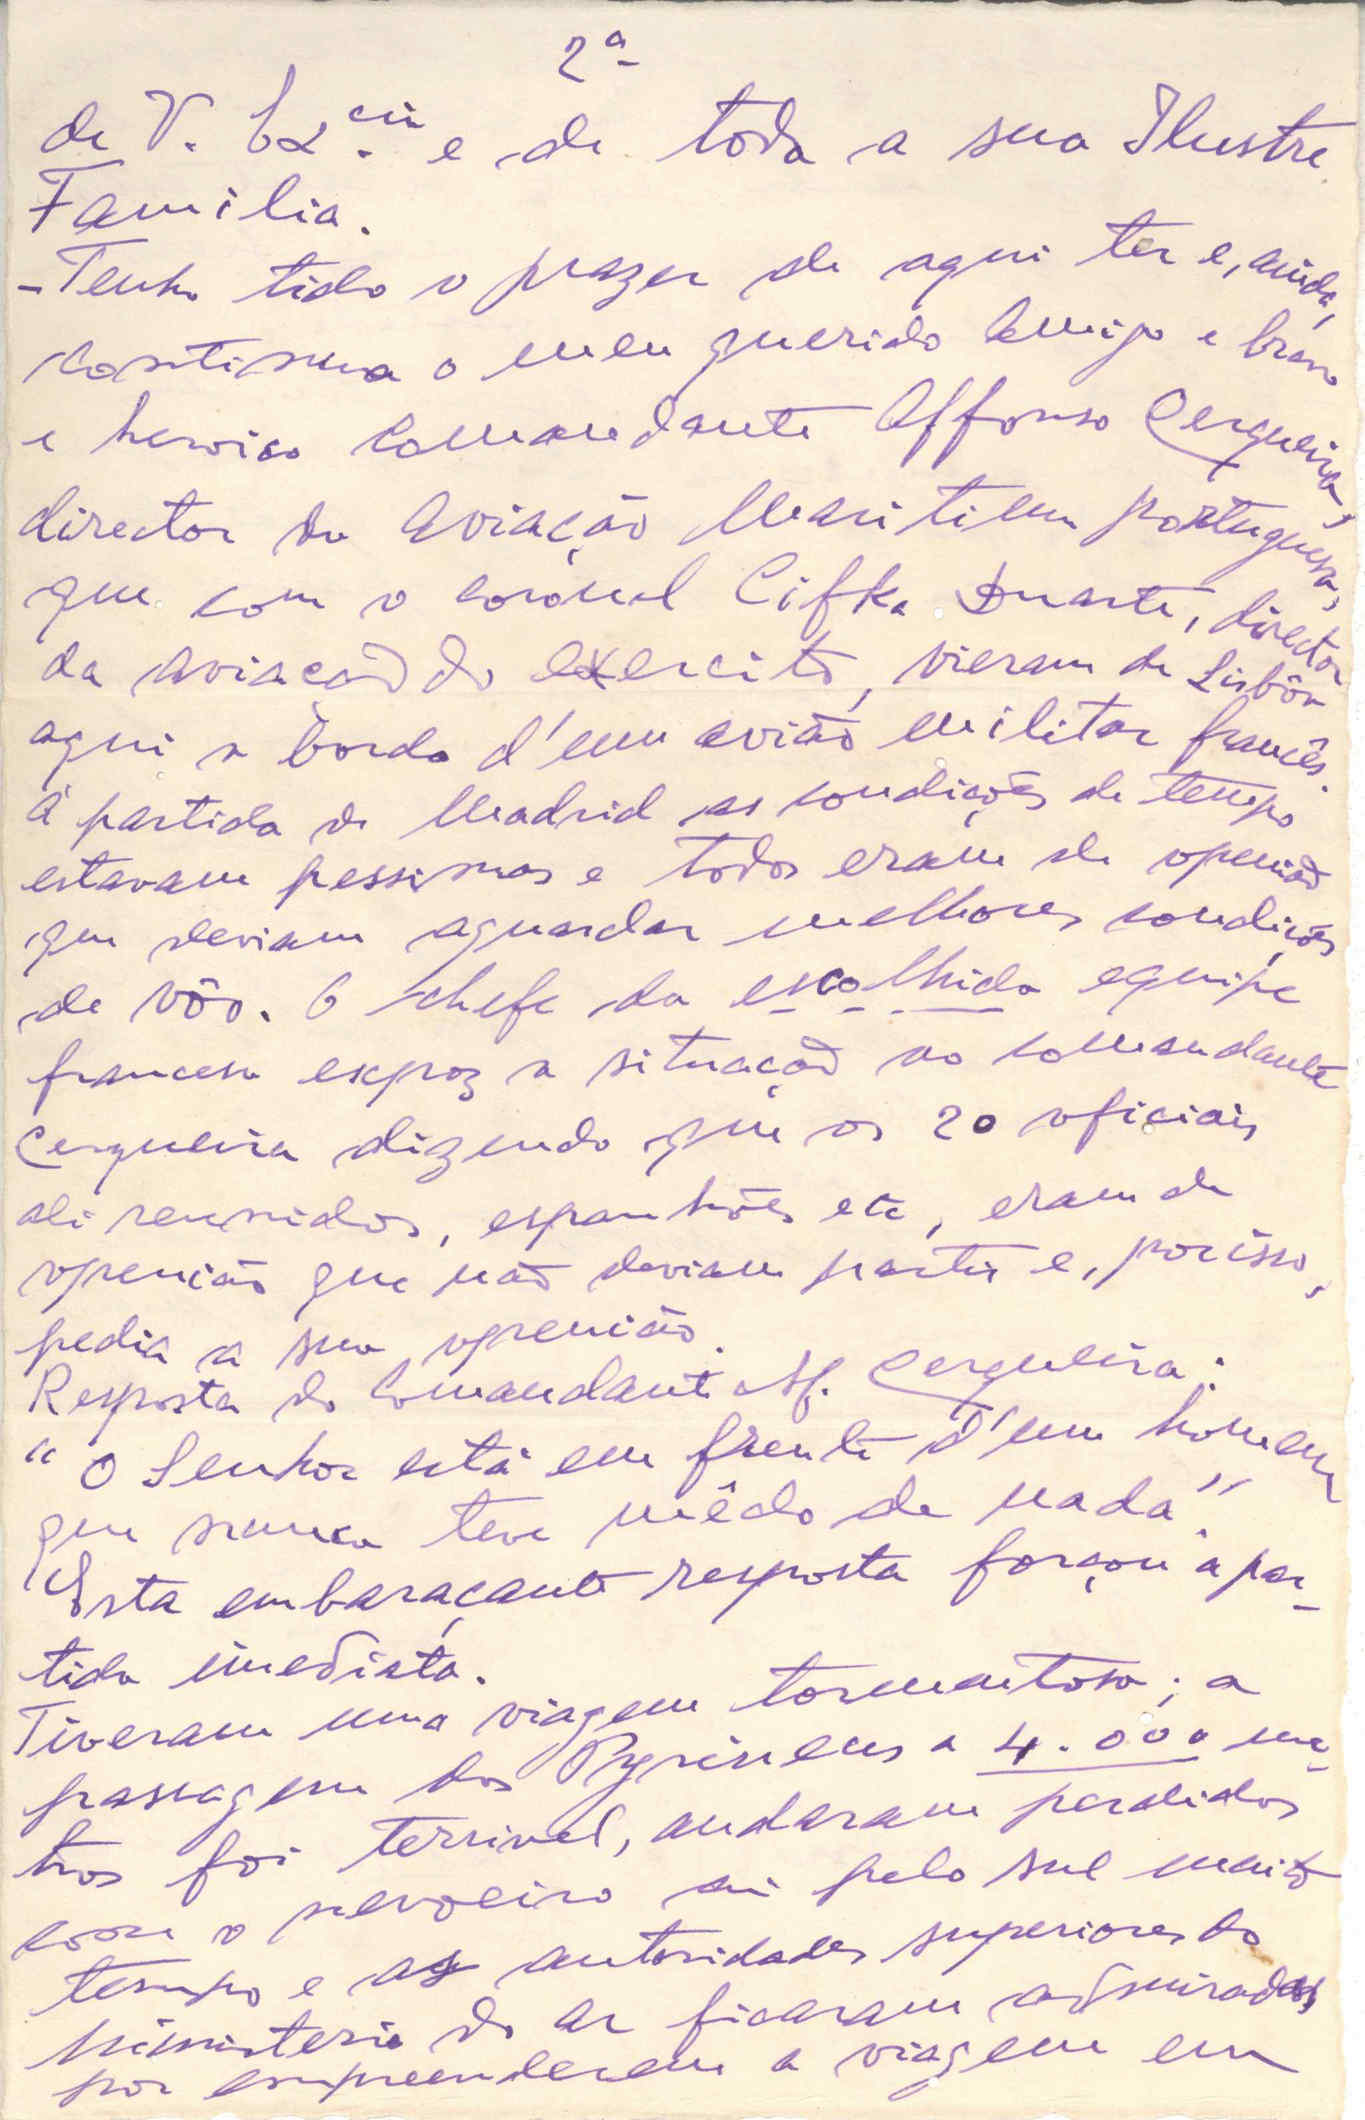 2ª
de V. Ex.cia e de toda a sua Ilustre
Familia.
- Tenho tido o prazer de aqui ter e, ainda,
continua o meu querido Amigo e bravo
e heroico Comandante Affonso Cerqueira,
director da Aviação Maritima portuguesa,
que com o coronel Cifka Duarte, director
da aviação do exercito, vieram de Lisbôa
aqui a bordo d'um avião militar francês.
Á partida de Madrid as condições de tempo
estavam pessimas e todos eram de openião
que deviam aguardar melhores condições
de vôo. O chefe da escolhida equipe
francesa expoz a situação ao comandante
Cerqueira dizendo que os 20 oficiais
ali reunidos, espanhóes etc, eram de
openião que não deviam partir e, porisso,
pedia a sua openião.
Resposta do Comandante Af. Cerqueira:
"O Senhor está em frente d'um homem
que nunca teve mêdo de nada".
Esta embaraçante resposta forçou a par-
tida imediata.
Tiveram uma viagem tormentosa; a
passagem dos Pyrineus a 4.000 me-
tros foi terrivel, andaram perdidos
com o nevoeiro ai pelo sul muito
tempo e as autoridades superiores do
ministerio do Ar ficaram admirados
por empreenderem a viagem em